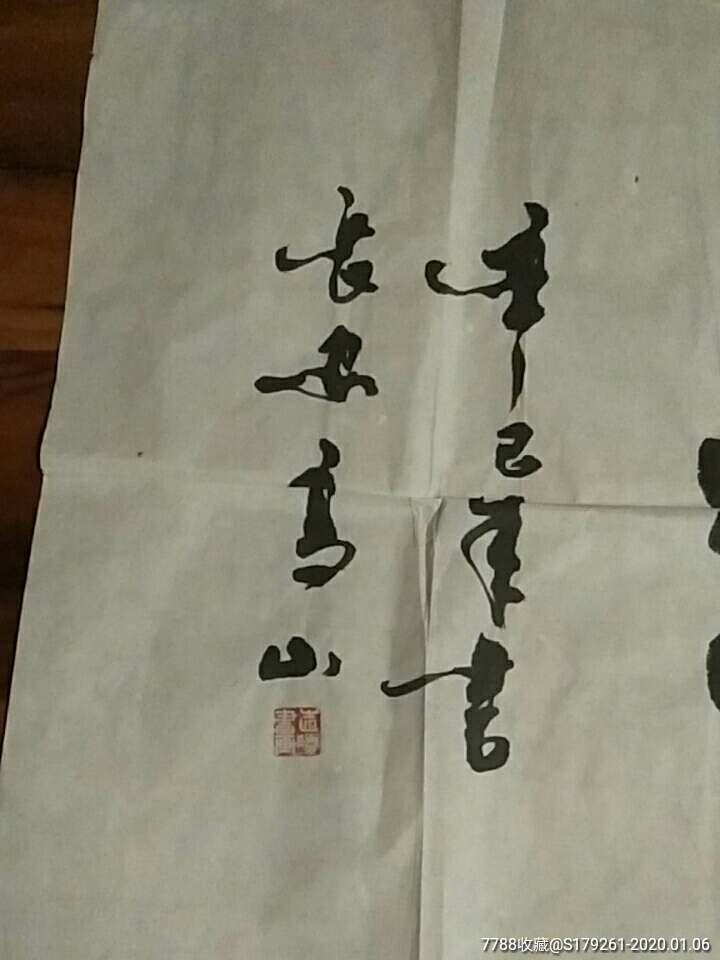 辛巳年書
長安高山
7788收藏@S179261-2020.01.06